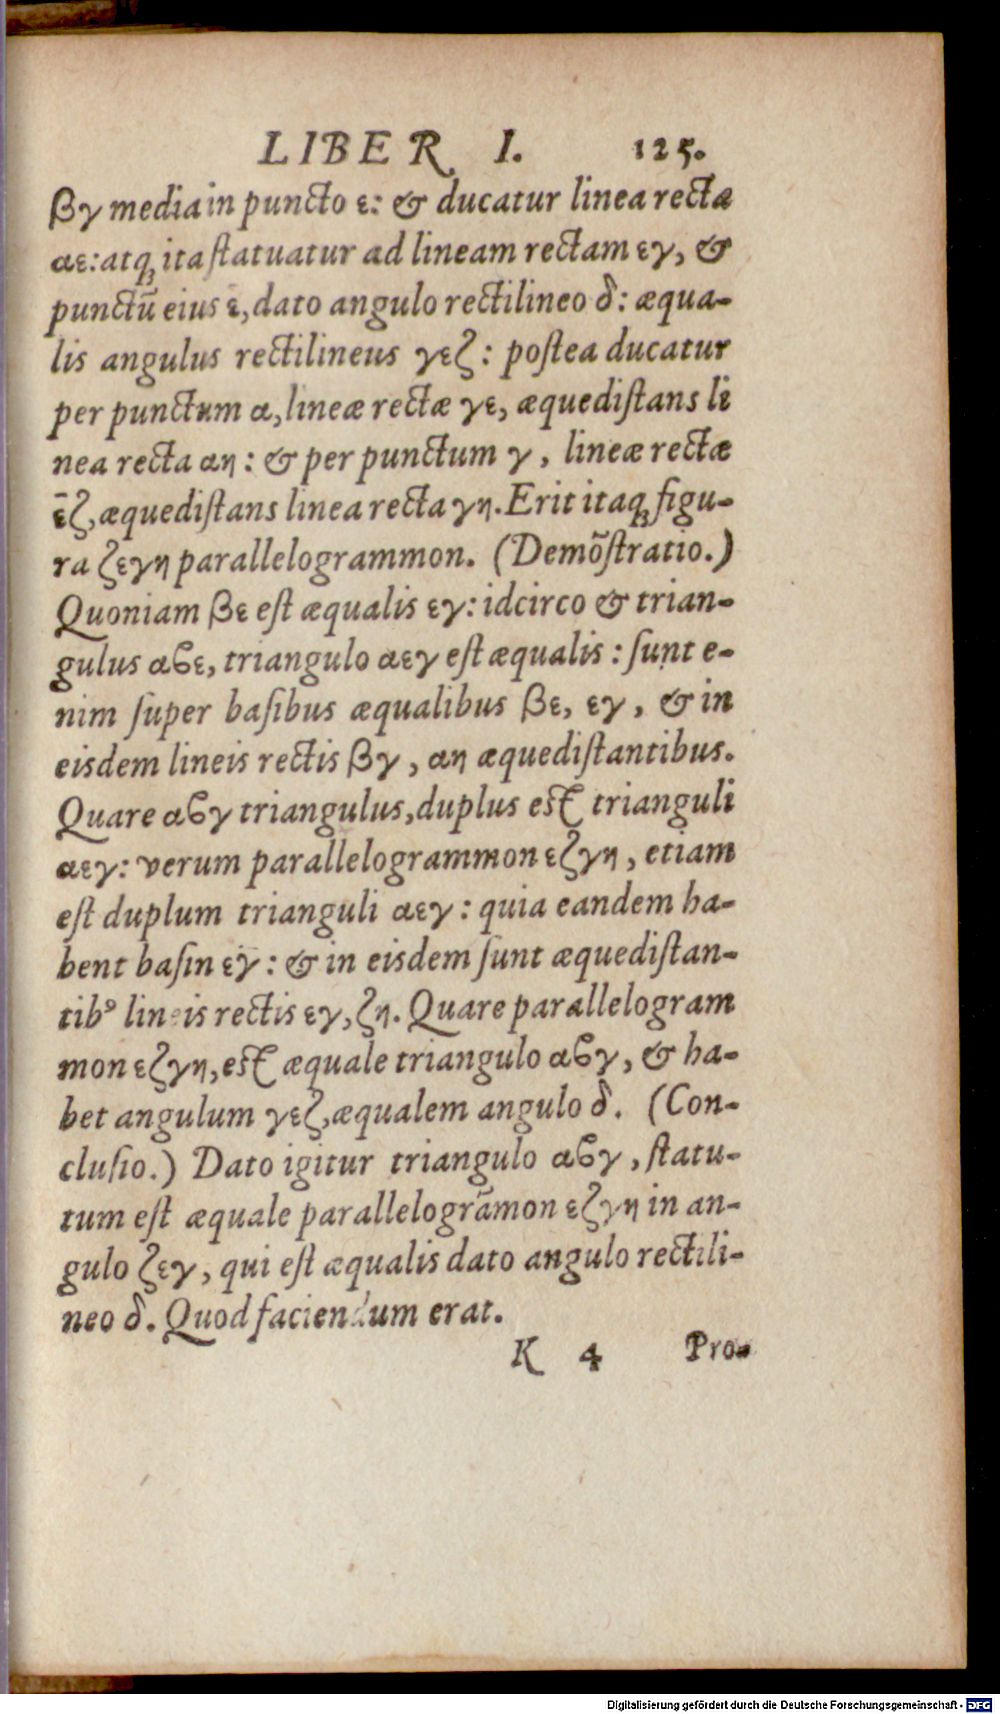 LIBER I. 125.
βγ media in puncto ε: & ducatur linea rectæ
αε: atq; ita ſtatuatur ad lineam rectam εγ, &
punctū eius ε, dato angulo rectilineo δ: æqua-
lis angulus rectilineus γεζ: poſtea ducatur
per punctum α, lineæ rectæ γε, æquediſtans li
nea recta αη: & per punctum γ, lineæ rectæ
εζ, æquediſtans linea recta γη. Erit itaq; figu-
ra ζεγη parallelogrammon. (Demõſtratio.)
Quoniam βε eſt æqualis εγ: idcirco & trian-
gulus αϐε, triangulo αεγ eſt æqualis: ſunt e-
nim ſuper baſibus æqualibus βε, εγ, & in
eisdem lineis rectis βγ, αη æquediſtantibus.
Quare αϐγ triangulus, duplus eſt trianguli
αεγ: verum parallelogrammon εζγη, etiam
eſt duplum trianguli αεγ: quia eandem ha-
bent baſin εγ: & in eisdem ſunt æquediſtan-
tibꝰ lineis rectis εγ, ζη. Quare parallelogram
mon εζγη, eſt æquale triangulo αϐγ, & ha-
bet angulum γεζ, æqualem angulo δ. (Con-
cluſio.) Dato igitur triangulo αϐγ, ſtatu-
tum eſt æquale parallelogrāmon εζγη in an-
gulo ζεγ, qui eſt æqualis dato angulo rectili-
neo δ. Quod faciendum erat.
K 4 Pro-
Digitalisierung gefördert durch die Deutsche Forschungsgemeinschaft - DFG